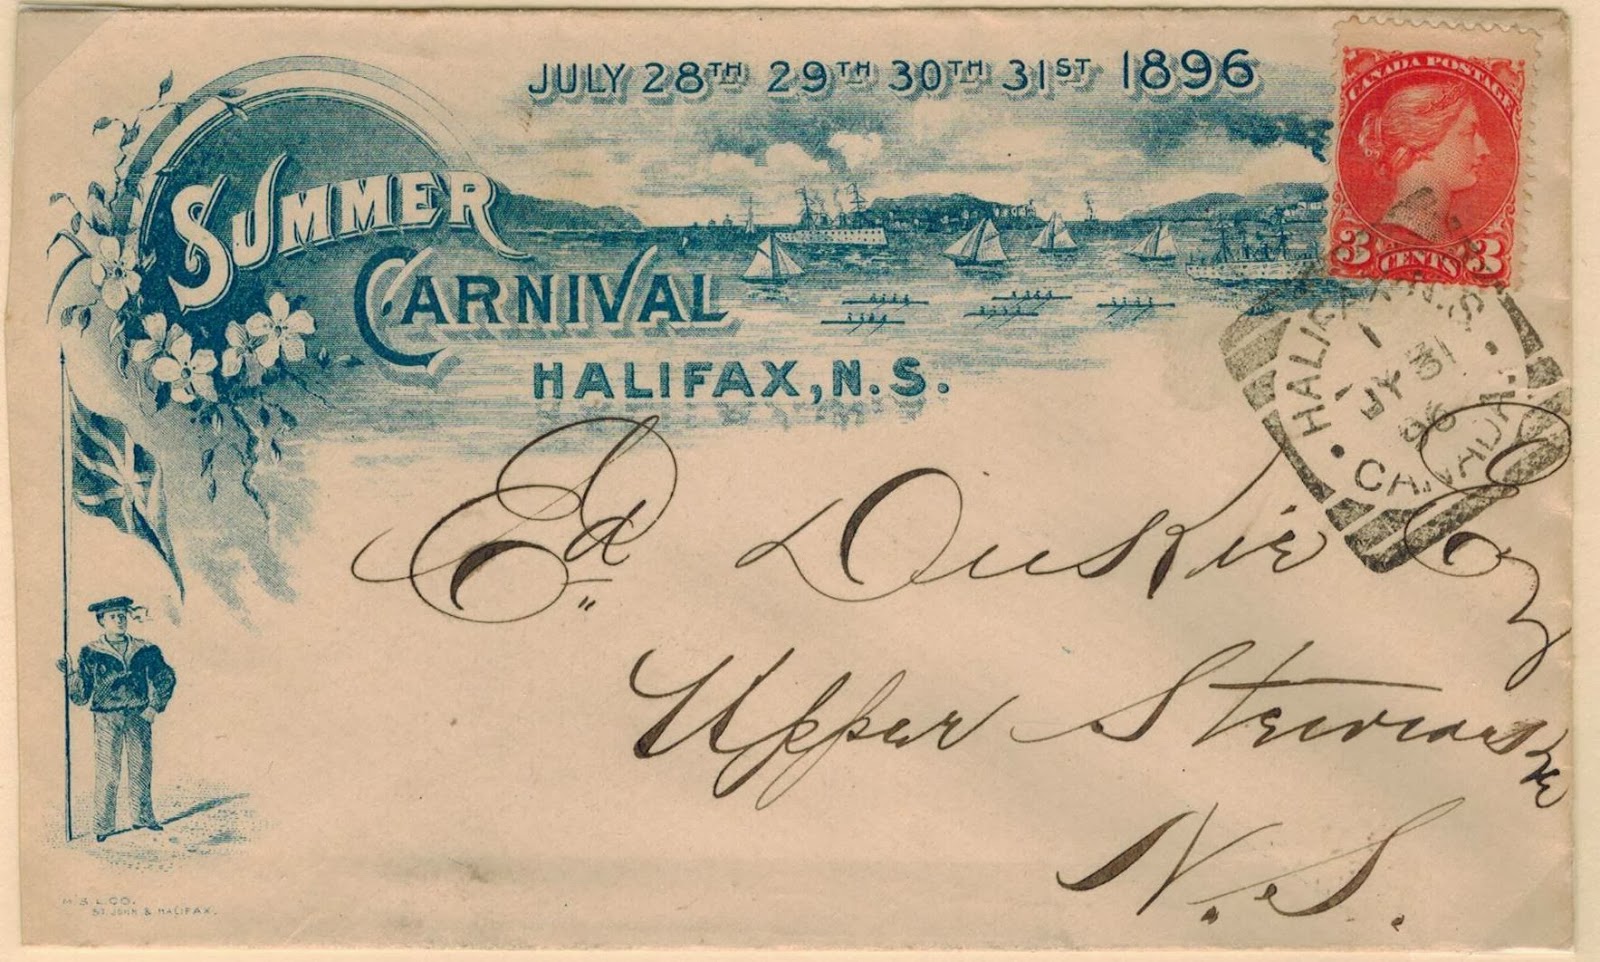 JULY 28TH 29TH 30TH 31ST 1896
SUMMER
CARNIVAL
HALIFAX, N.S.
CANADA POSTAGE
3 CENTS 3
HALIFAX N.S.
1
JY 31
96
CANADA
Ed Duskie Esq
Upper Stewiacke
N.S.
M.S.L.CO.
ST JOHN & HALIFAX.